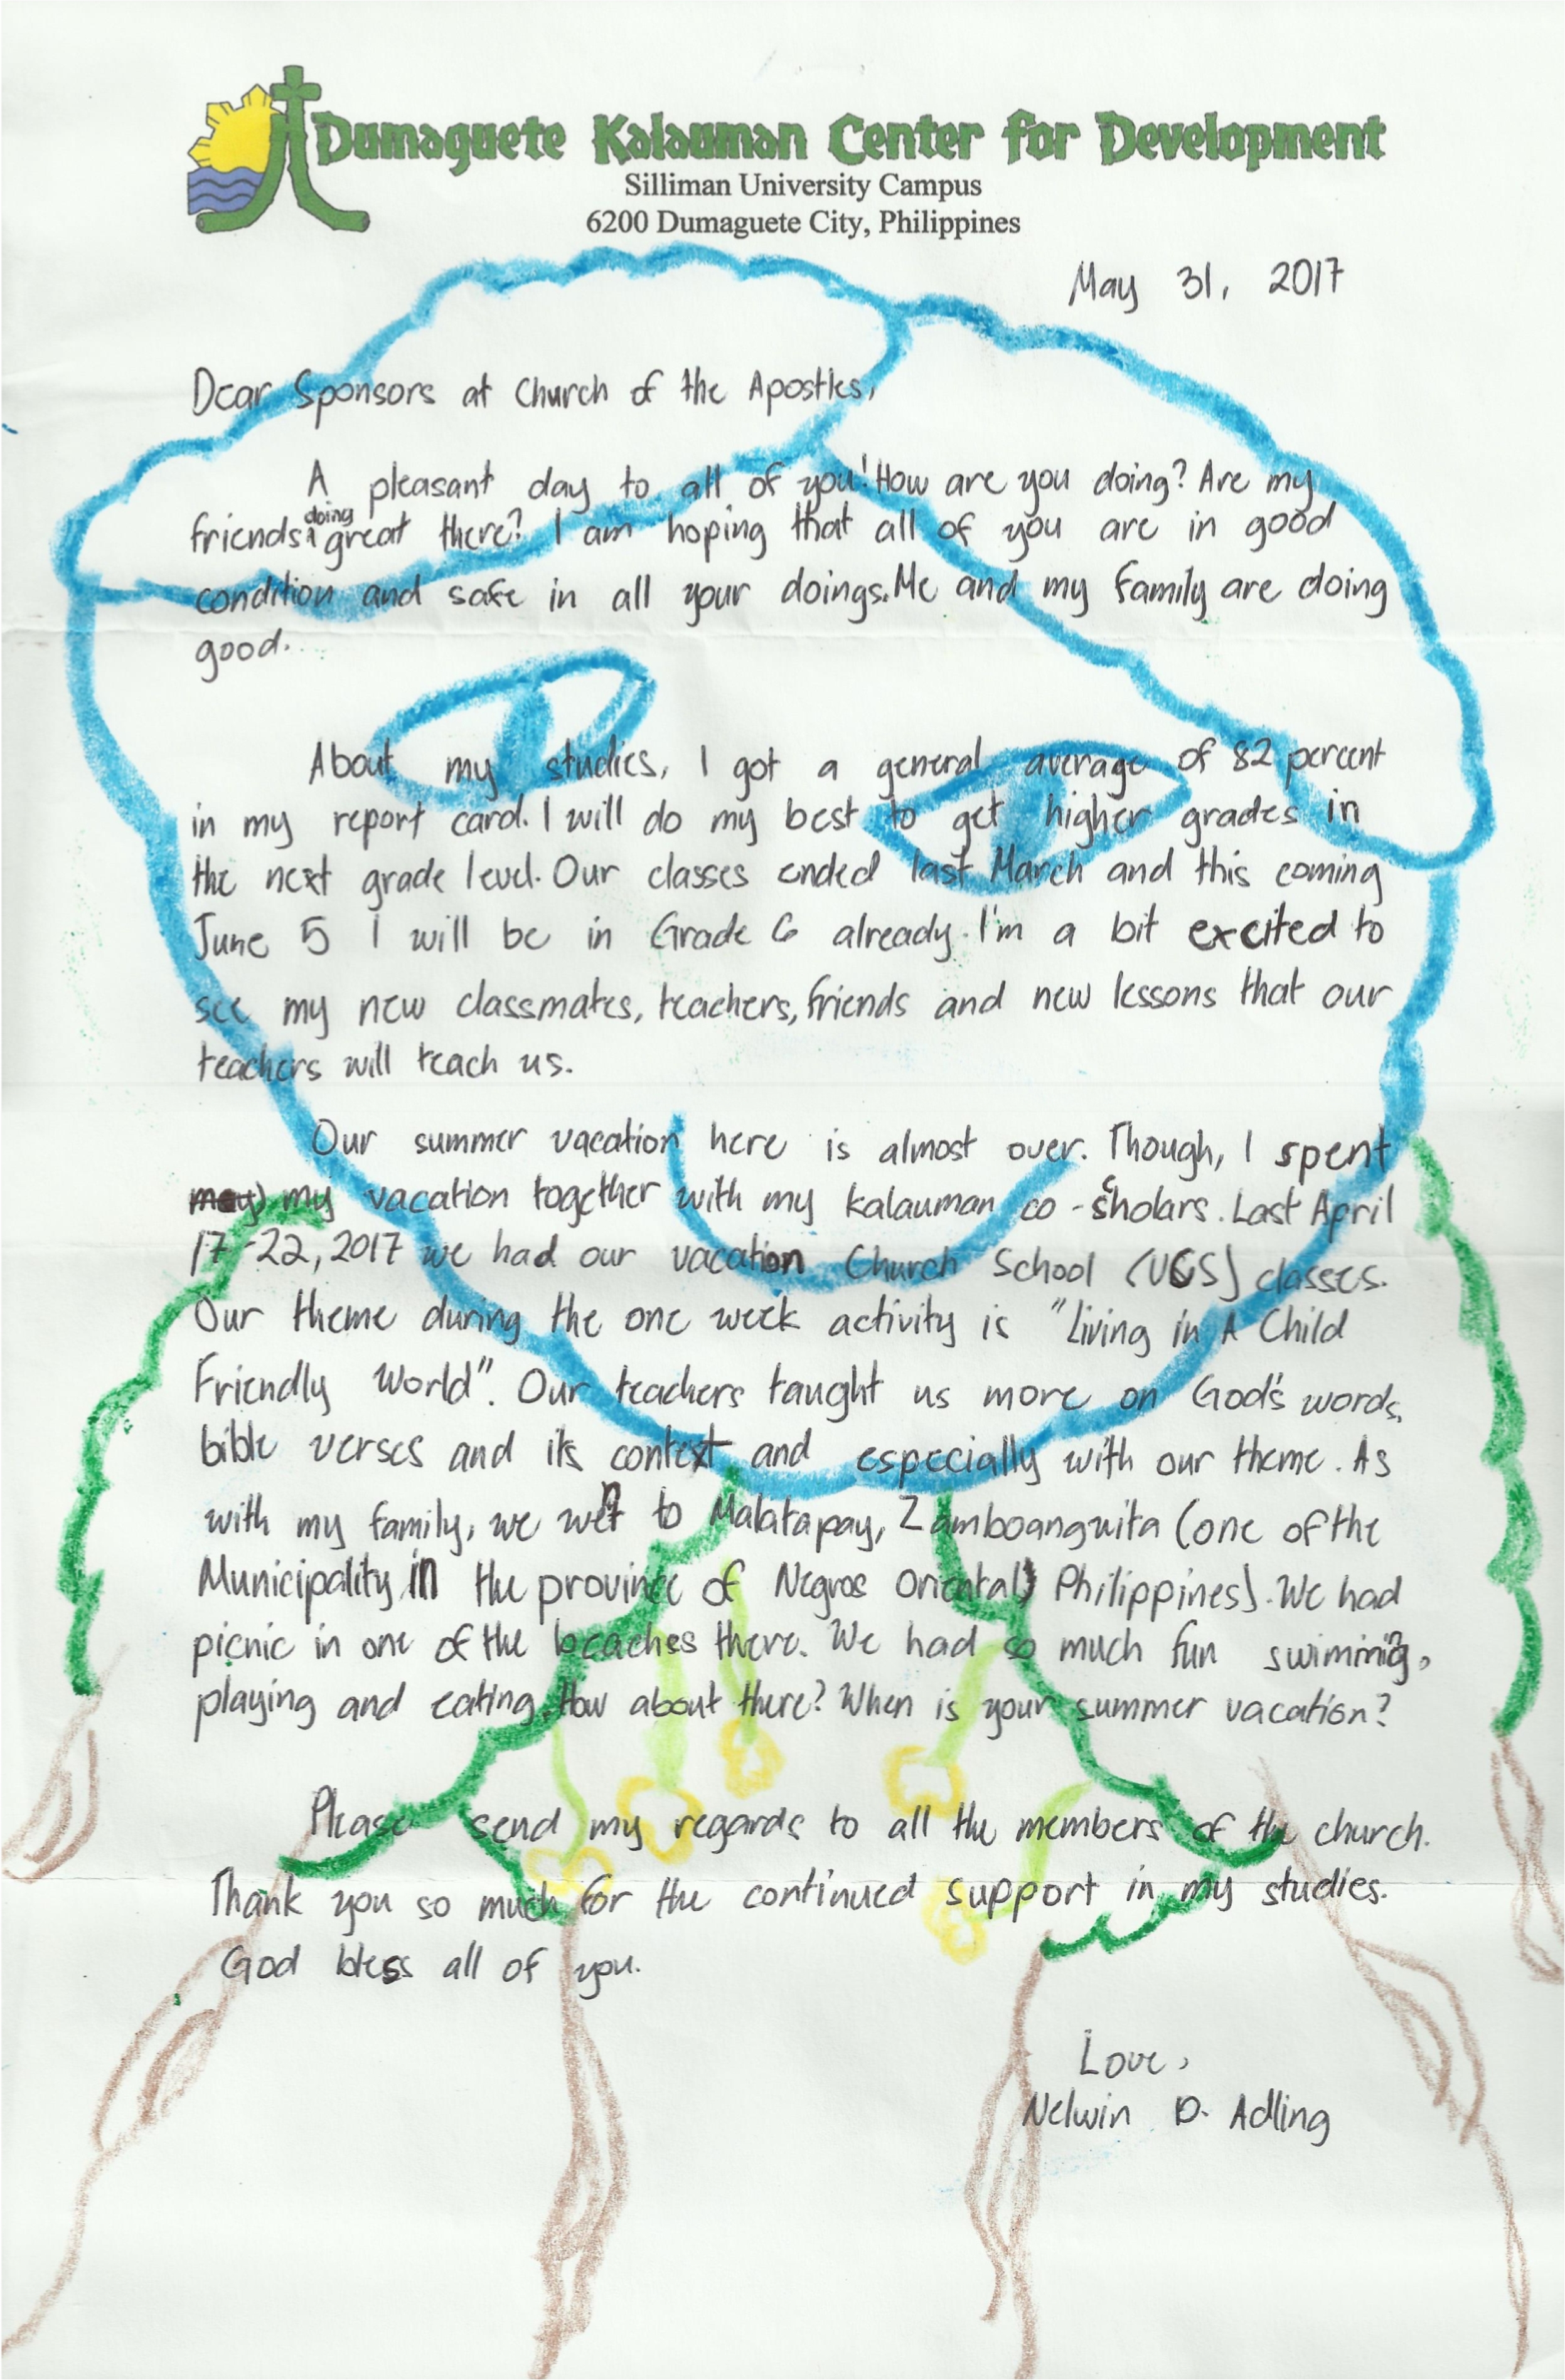 Dumaguete Kalauman Center for Development
Silliman University Campus
6200 Dumaguete City, Philippines
May 31, 2017
Dear Sponsors at Church of the Apostles,
A pleasant day to all of you! How are you doing? Are my
friends doing great there? I am hoping that all of you are in good
condition and safe in all your doings. Me and my family are doing
good.
About my studies, I got a general average of 82 percent
in my report card. I will do my best to get higher grades in
the next grade level. Our classes ended last March and this coming
June 5 I will be in Grade 6 already. I'm a bit excited to
see my new classmates, teachers, friends and new lessons that our
teachers will teach us.
Our summer vacation here is almost over. Though, I spent
my vacation together with my kalauman co-scholars. Last April
17-22, 2017 we had our vacation Church School (VCS) classes.
Our theme during the one week activity is "Living in A Child
Friendly World". Our teachers taught us more on God's words,
bible verses and its context and especially with our theme. As
with my family, we went to Malatapay, Zamboanguita (one of the
Municipality in the province of Negros Oriental, Philippines). We had
picnic in one of the beaches there. We had so much fun swimming,
playing and eating. How about there? When is your summer vacation?
Please send my regards to all the members of the church.
Thank you so much for the continued support in my studies.
God bless all of you.
Love,
Nelwin D. Adling